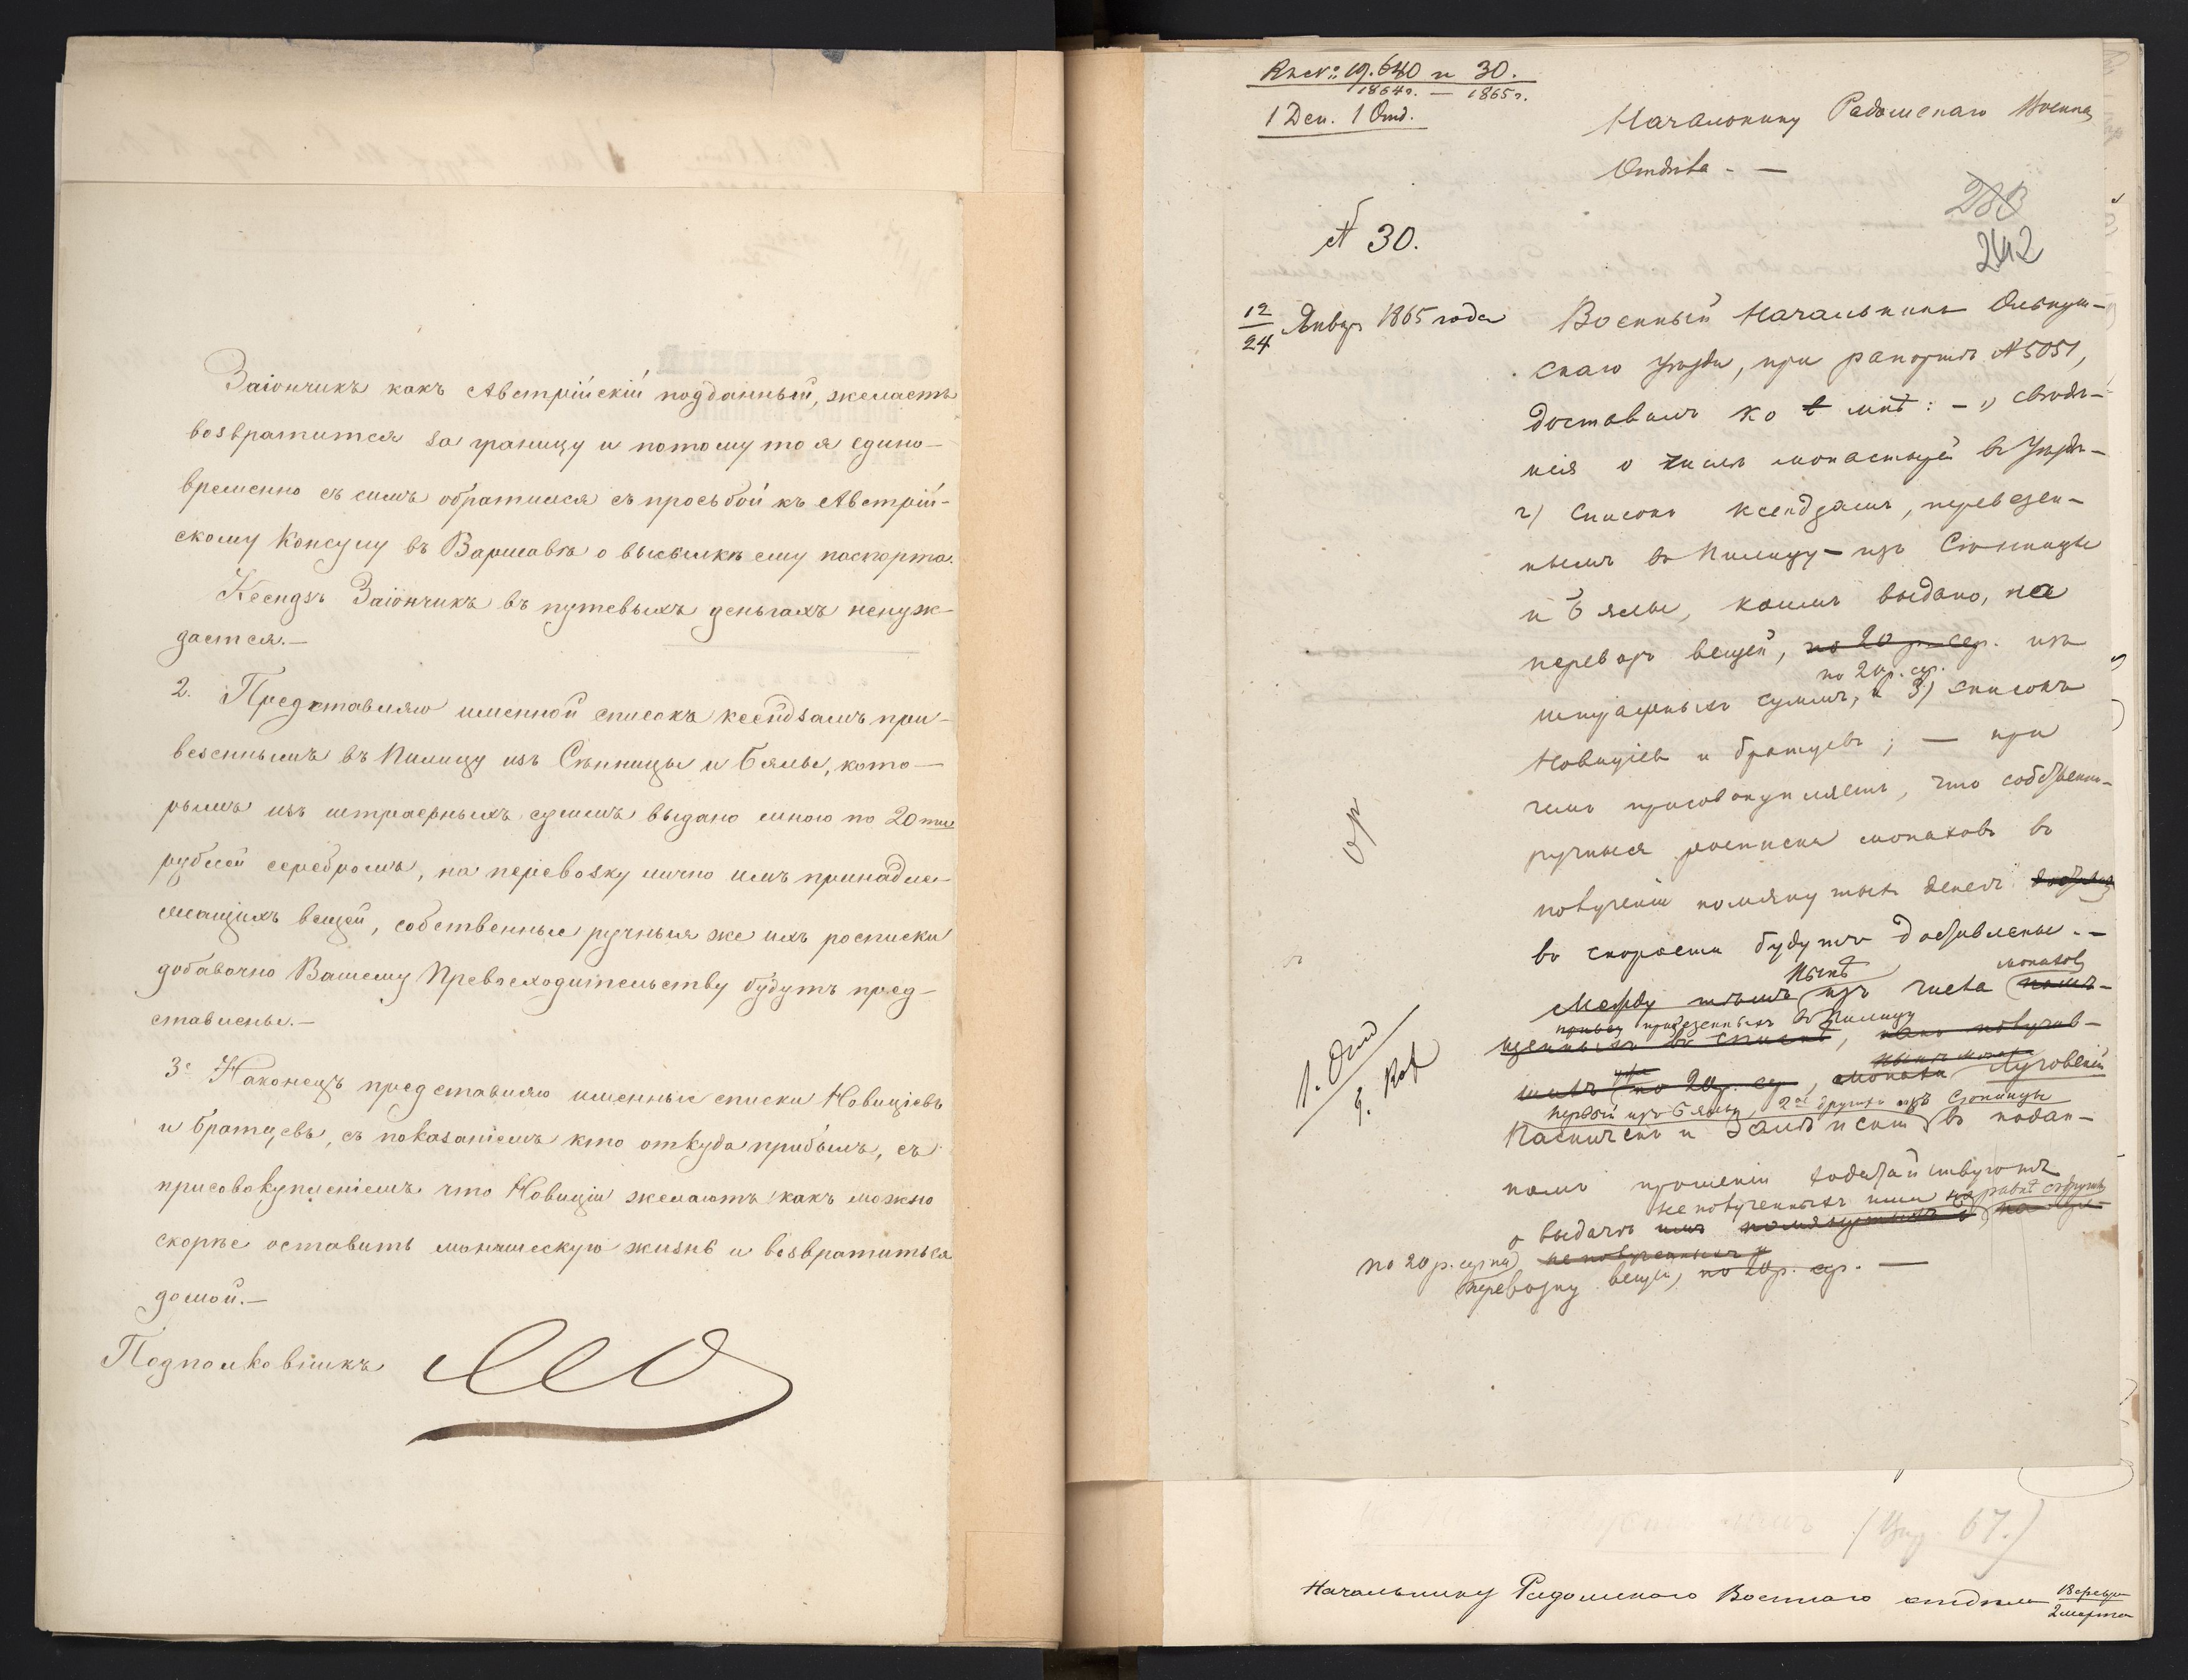 Заіончикъ какъ Австрійскій подданный, желаетъ
возвратится за границу и потому то я едино-
временно съ симъ обратился съ просьбой къ Австрій-
скому Консулу въ Варшавѣ о высылкѣ ему паспорта.
Ксендзъ Заіончикъ въ путевыхъ деньгахъ ненуж-
дается.—
2. Представляю именной списокъ ксендзамъ при-
везеннымъ въ Пилицу изъ Сѣнницы и Бялы, кото-
рымъ изъ штрафныхъ суммъ выдано мною по 20 ти
рублей серебромъ, на перевозку лично имъ принадле-
жащихъ вещей, собственные ручныя же ихъ росписки
добавочно Вашему Превосходительству будутъ пред-
ставлены.—
3. Наконецъ представляю именные списки Новиціевъ
и братцевъ, съ показаніемъ кто откуда прибылъ, съ
присовокупленіемъ что Новиціи желаютъ какъ можно
скорѣе оставить монашескую жизнь и возвратиться
домой.—
Подполковникъ
19.640 и 30.
1864г. — 1865г.
1 Деп. 1 Отд.
Начальнику Радомскаго Военна
Отдѣла. —
№ 30.
233
242
12/24 Январ 1865 года
Военный Начальникъ Олькуш-
скаго Уѣзда, при рапортѣ №5051,
доставилъ ко мнѣ: — 1) свѣдѣ-
нія о числѣ монастырей въ Уѣздѣ—
2) Списокъ ксендзамъ, перевезен-
нымъ въ Пилицу — изъ Сѣнницы
и Бялы, коимъ выдано, на
перевозъ вещей, по 20 р. сер. изъ
по 20 р. ср.
штрафныхъ суммъ, и 3) списокъ
Новиціев и братцевъ; — при
чемъ присовокупляетъ, что собственно-
ручныя росписки монаховъ въ
полученіи помянутыхъ денегъ
въ скорости будутъ доставлены. —
Нынѣ монахов
Между тѣмъ изъ числа
привезенныхъ въ Пилицу
1. Отд
по 20 р. ср., Луговскій
первый изъ Бялы, 2ое другихъ изъ Сѣнницы
и въ подан-
номъ прошеніи ходатайствуютъ
не полученныхъ ими
о выдачѣ имъ
по 20 р. сер на
перевозку вещей, по 20 р. ср. —
67.)
Начальнику Радомскаго Военнаго отдѣла 18 февр/2 марта